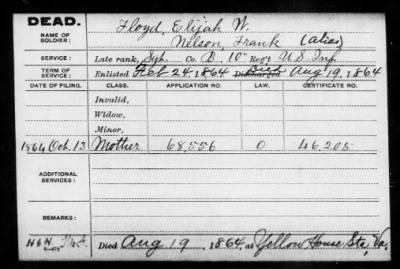 DEAD.
NAME OF SOLDIER:
Floyd, Elijah W.
Nelson, Frank (alias)
SERVICE: Late rank, Co. D, 10" Reg't U.S. Inf
TERM OF SERVICE: Enlisted Feb 24, 1864 Discharged Died Aug 19, 1864
DATE OF FILING. CLASS. APPLICATION NO. LAW. CERTIFICATE NO.
Invalid,
Widow,
Minor,
1864 Oct. 13 Mother 68,556 0 46,205
ADDITIONAL SERVICES:
REMARKS:
Died Aug 19, 1864, at Yellow House Sta, Va,